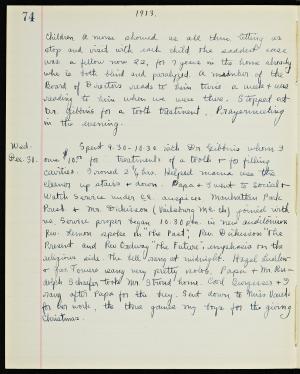 74
1913.
children. A nurse showed us all thru letting us
stop and visit with each child the saddest case
was a fellow now 22, for 7 years in the home already
who is both blind and paralyzed. A member of the
Board of Directors reads to him twice a week & was
reading to him when we were there. Stopped at
Dr. Gibbins for a tooth treatment. Prayermeeting
in the evening.
Wed.
Dec. 31.
Spent 9.30-10.30 with Dr Gibbins whom I
owe $10.00 for treatments of a tooth & for filling
cavities. Ironed 2 ½ hrs. Helped mama use the
cleaner up stairs & down. Papa & I went to Social &
Watch Service under C.E. auspices. Manhattan Park
Presb & Mr. Dickinson (Vailsburg M.E. Ch) joined with
us. Service proper began 10.30 p.m. in new auditorium
Rev. Lemon spoke on "The Past", Rev. Dickinson "The
Present and Rev Ordway "The Future", emphasis on the
religious side. The bell rang at midnight. Hazel
& Jas Towers sang very pretty solos. Papa & Mr. Ru-
dolph Schaefer took Mr Stroud home. Carl Burgesser & I
rang after Papa for the key. Sent down to Miss
for her work, the three games my boys for the giving
Christmas.